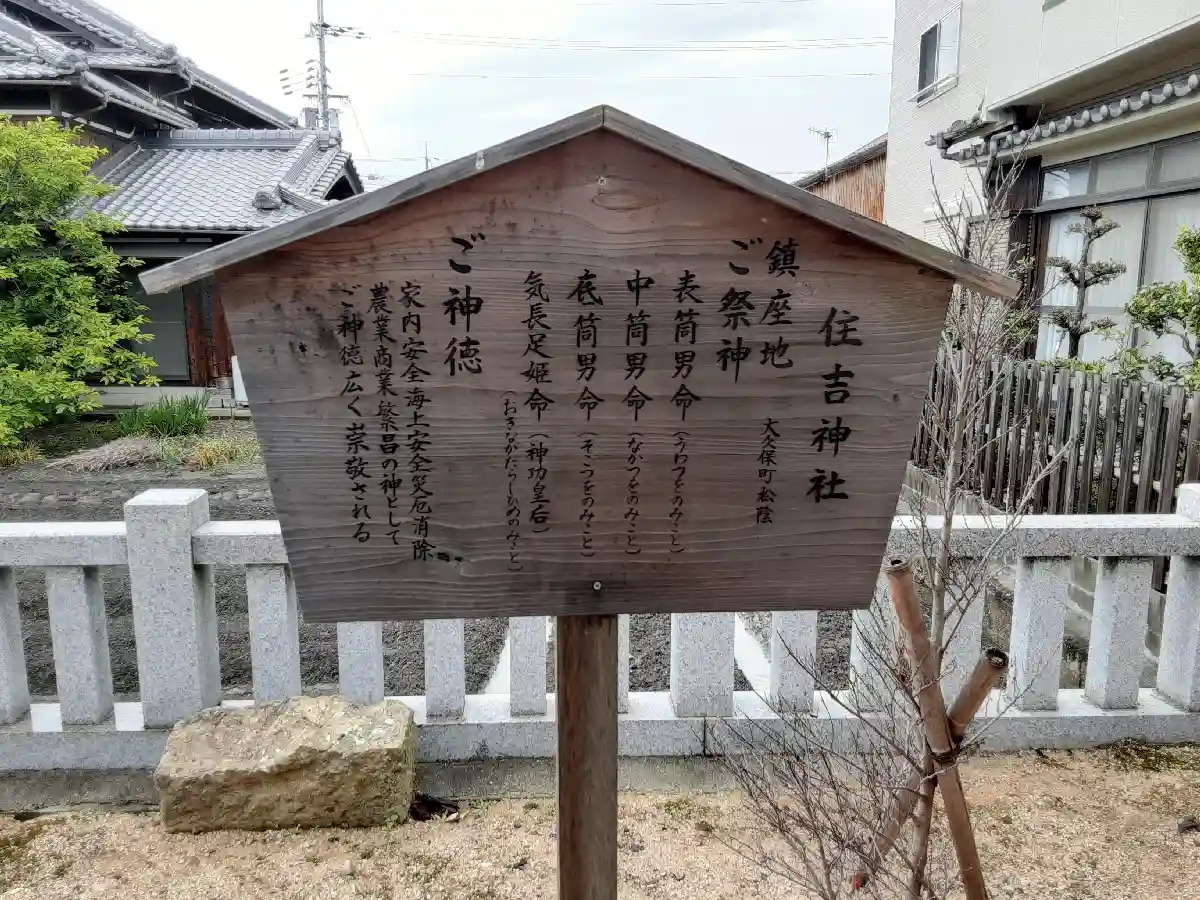 住吉神社
鎮座地 大久保町松陰
ご祭神
表筒男命(うわつつをのみこと)
中筒男命(なかつつをのみこと)
底筒男命(そこつつをのみこと)
気長足姫命(神功皇后)
(おきながたらしひめのみこと)
ご神徳
家内安全海上安全災厄消除
農業商業繁昌の神として
ご神徳広く崇敬される